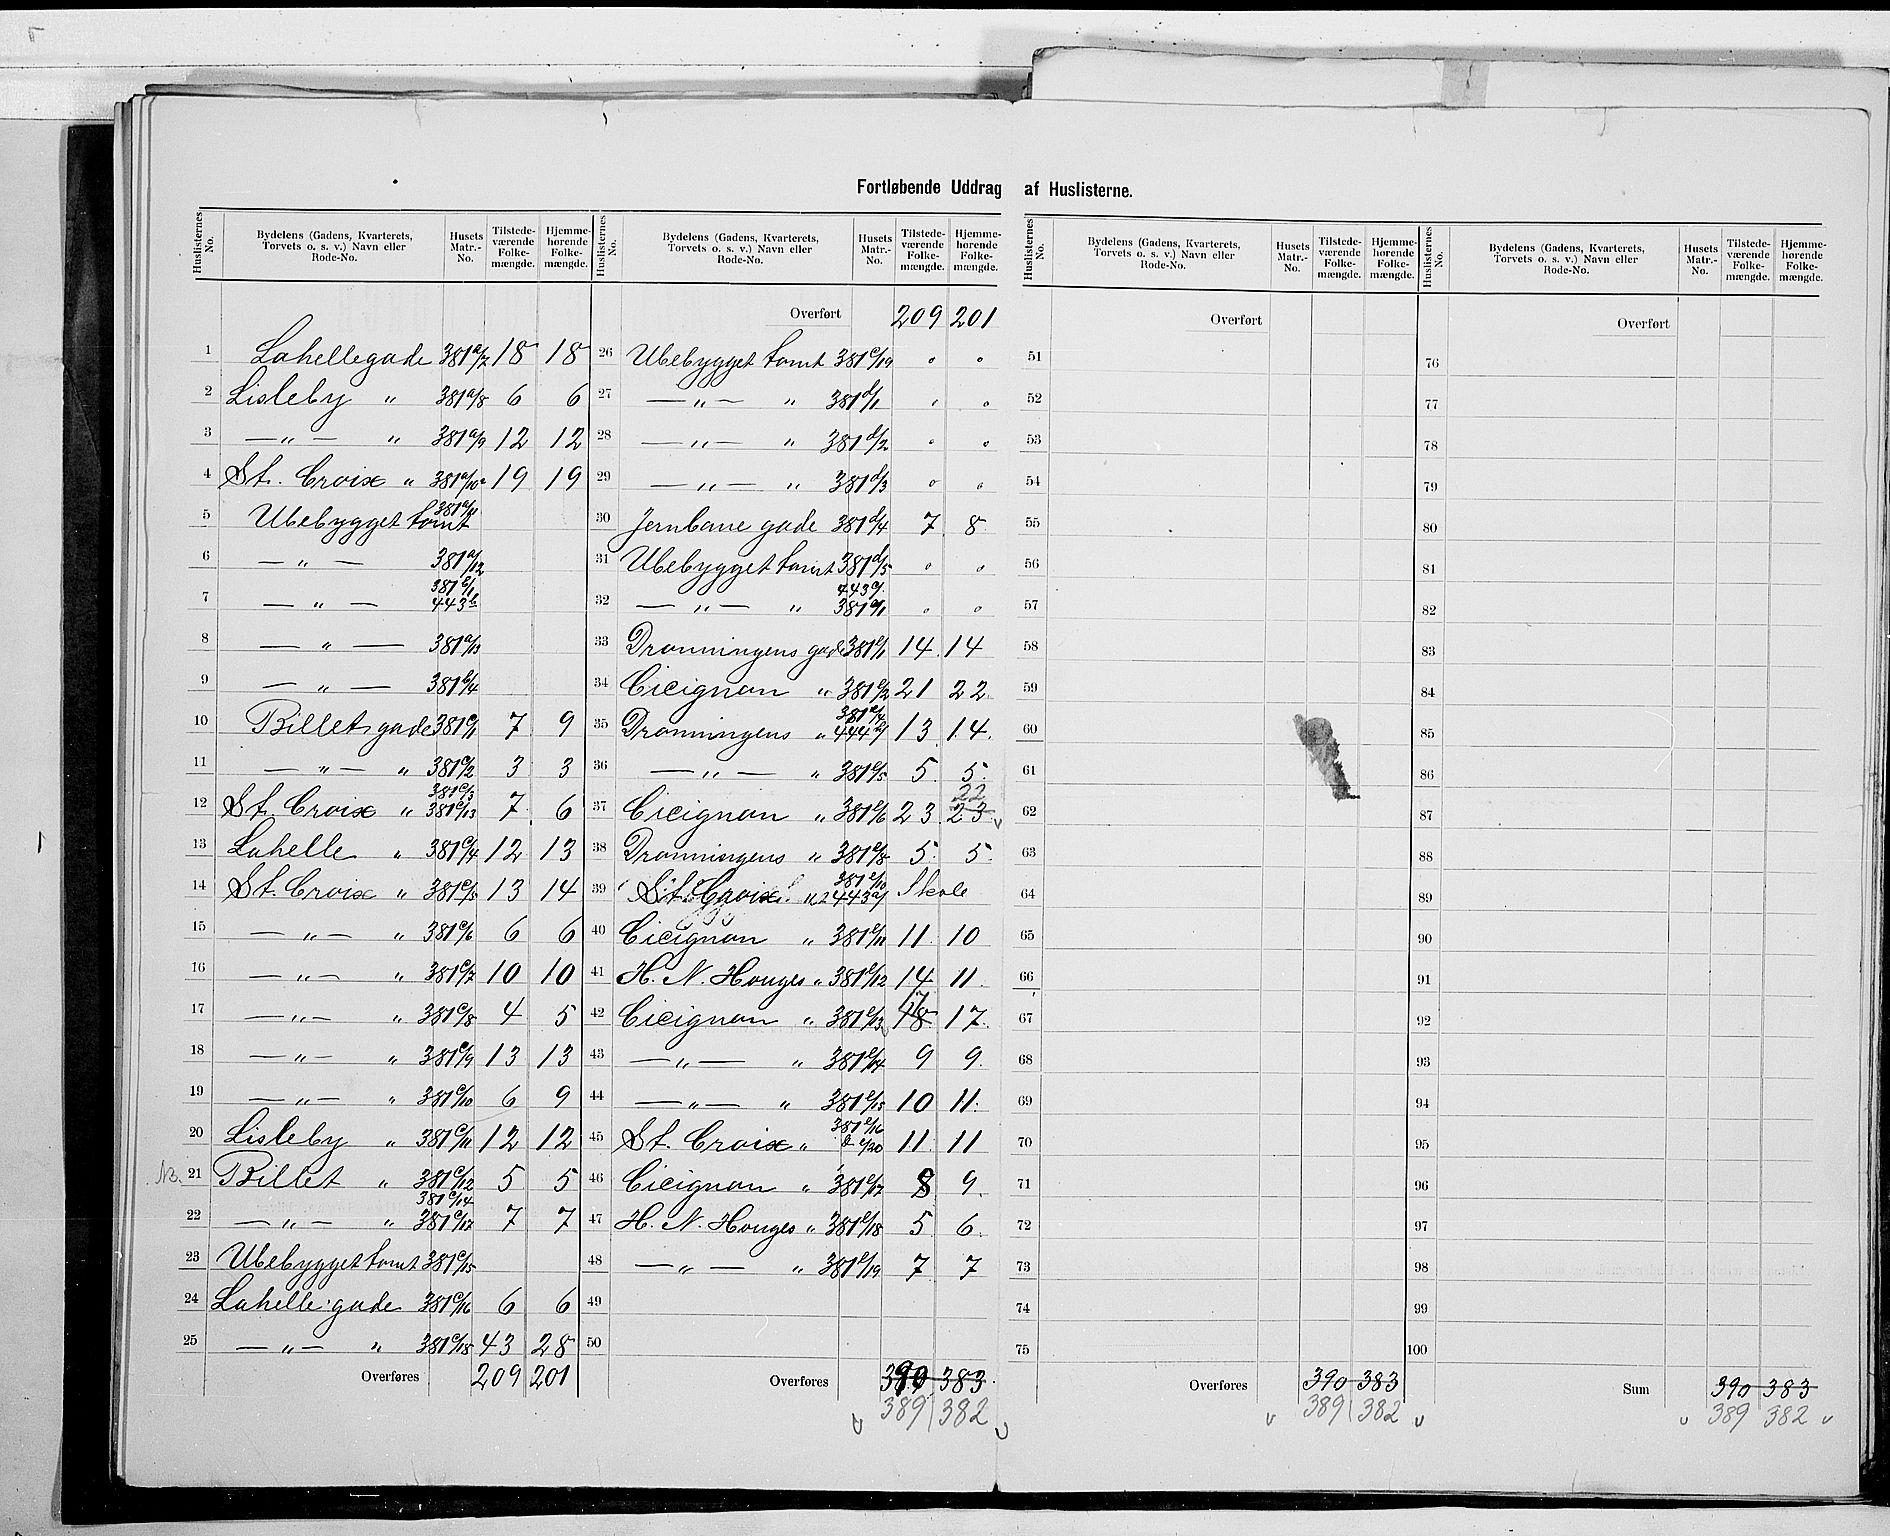 Fortløbende Uddrag af Huslisterne.
Huslisternes No. | Bydelens (Gadens, Kvarterets, Torvets o. s. v.) Navn eller Rode-No. | Husets Matr.-No. | Tilstede-værende Folke-mængde. | Hjemme-hørende Folke-mængde.
1 Lahellegade 381a/7 18 18
2 Lisleby " 381a/8 6 6
3 —"— " 381a/9 12 12
4 St. Croix " 381a/10a 19 19
5 Ubebygget tomt 381a/11
6 —"— 381a/12
7 —"— 381b/1 443b
8 —"— 381a/13
9 —"— 381b/4
10 Billetsgade 381c/1 7 9
11 —"— " 381c/2 3 3
12 St. Croix " 381c/3 381c/13 7 6
13 Lahelle " 381c/4 12 13
14 St. Croix " 381c/5 13 14
15 —"— " 381c/6 6 6
16 —"— " 381c/7 10 10
17 —"— " 381c/8 4 5
18 —"— " 381c/9 13 13
19 —"— " 381c/10 6 9
20 Lisleby " 381c/11 12 12
NB. 21 Billet " 381c/12 5 5
22 —"— " 381c/14 381c/17 7 7
23 Ubebygget tomt 381c/15
24 Lahelle gade 381c/16 6 6
25 —"— " 381c/18 43 28
Overføres 209 201
Huslisternes No. | Bydelens (Gadens, Kvarterets, Torvets o. s. v.) Navn eller Rode-No. | Husets Matr.-No. | Tilstede-værende Folke-mængde. | Hjemme-hørende Folke-mængde.
Overført 209 201
26 Ubebygget tomt 381c/19 " "
27 —"— " 381d/1 " "
28 —"— " 381d/2 " "
29 —"— " 381d/3 " "
30 Jernbane gade 381d/4 7 8
31 Ubebygget tomt 381d/5 " "
32 —"— " 443a/ 381a/1 " "
33 Dronningens gade 381e/1 14 14
34 Cicignon " 381e/2 21 22
35 Dronningens " 381e/4 444a/ 13 14
36 —"— " 381e/5 5 5
37 Cicignon " 381e/6 23 23 22
38 Dronningens " 381e/8 5 5
39 St. Croix " 381e/10 443a/ Skole
40 Cicignon " 381e/11 11 10
41 H. N. Hauges " 381e/12 14 11
42 Cicignon " 381e/13 18 17 17
43 —"— " 381e/14 9 9
44 —"— " 381e/15 10 11
45 St. Croix " 381e/16 & e/20 11 11
46 Cicignon " 381e/17 8 9
47 H. N. Hauges " 381e/18 5 6
48 —"— " 381e/19 7 7
49
50
Overføres 390 383
389 382
Huslisternes No. | Bydelens (Gadens, Kvarterets, Torvets o. s. v.) Navn eller Rode-No. | Husets Matr.-No. | Tilstede-værende Folke-mængde. | Hjemme-hørende Folke-mængde.
Overført
51
52
53
54
55
56
57
58
59
60
61
62
63
64
65
66
67
68
69
70
71
72
73
74
75
Overføres 390 383
389 382
Huslisternes No. | Bydelens (Gadens, Kvarterets, Torvets o. s. v.) Navn eller Rode-No. | Husets Matr.-No. | Tilstede-værende Folke-mængde. | Hjemme-hørende Folke-mængde.
Overført
76
77
78
79
80
81
82
83
84
85
86
87
88
89
90
91
92
93
94
95
96
97
98
99
100
Sum 390 383
389 382